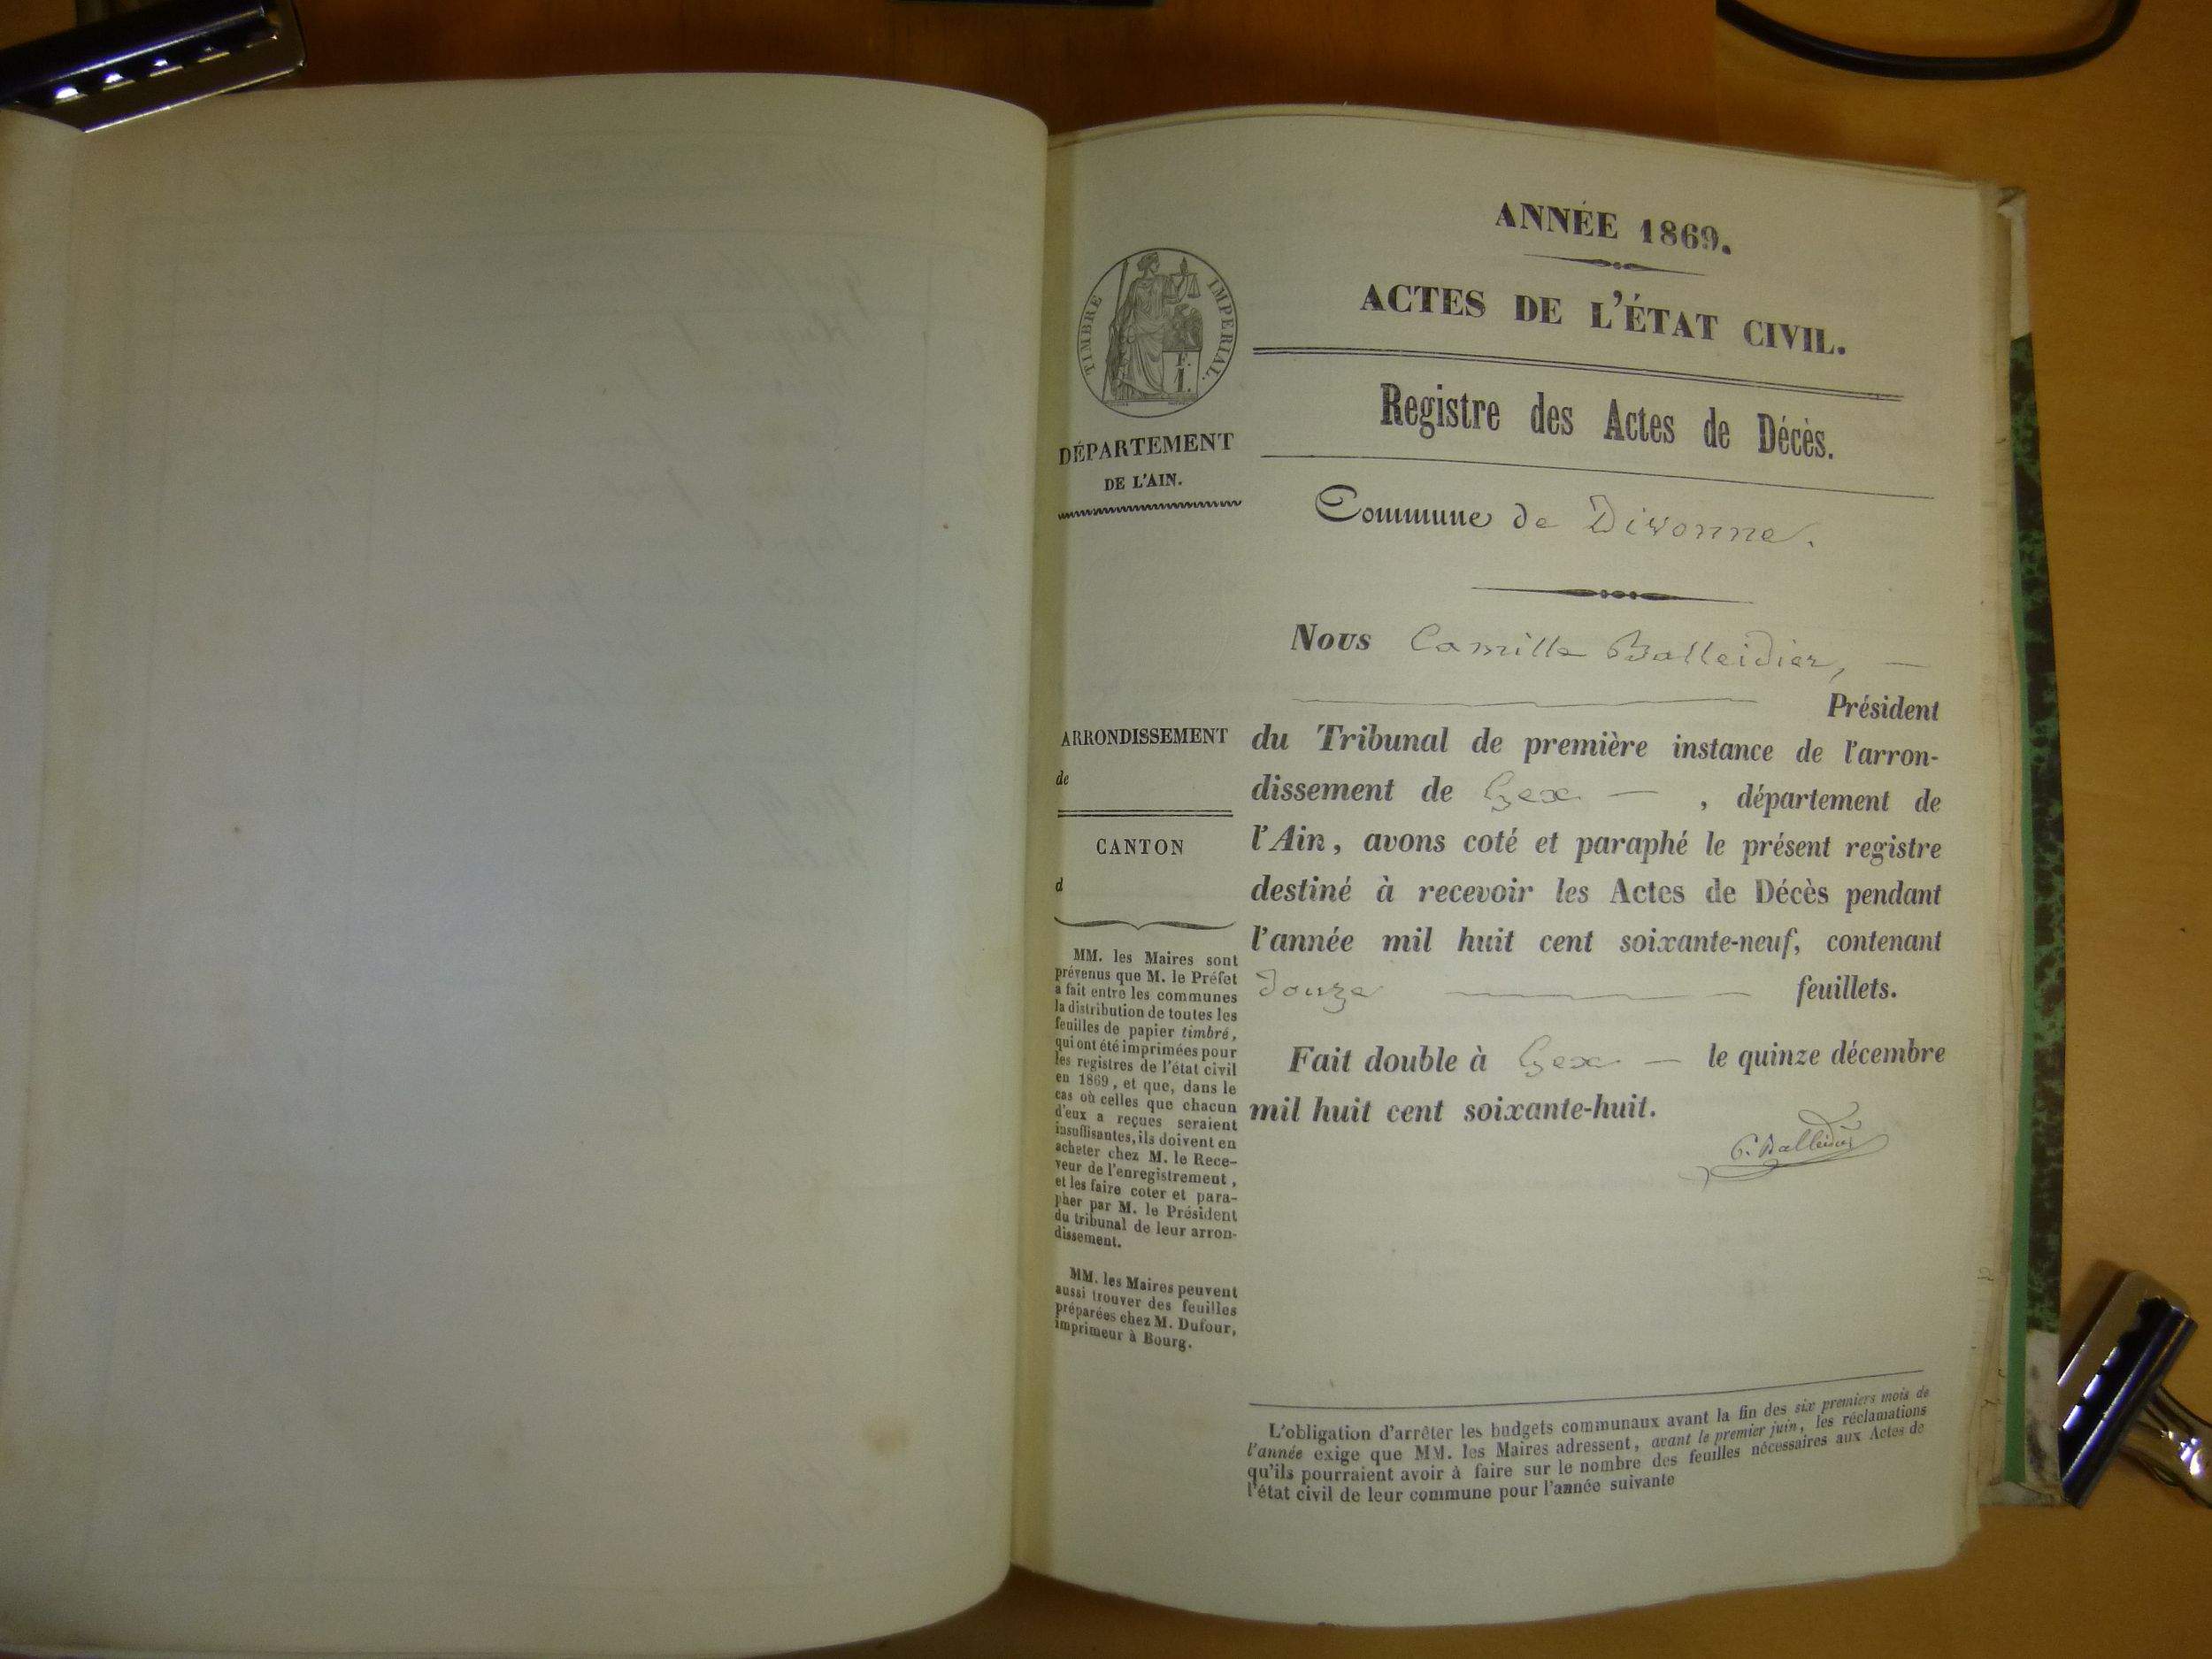 ANNÉE 1869.
ACTES DE L'ÉTAT CIVIL.
Registre des Actes de Décès.
Commune de Divonne.
TIMBRE IMPERIAL.
F.
1.
DÉPARTEMENT
DE L'AIN.
Nous Camille Balleidier, —
Président
du Tribunal de première instance de l'arron-
dissement de Gex — , département de
l'Ain, avons coté et paraphé le présent registre
destiné à recevoir les Actes de Décès pendant
l'année mil huit cent soixante-neuf, contenant
douze — feuillets.
Fait double à Gex — le quinze décembre
mil huit cent soixante-huit.
C. Balleidier
ARRONDISSEMENT
de
CANTON
d
MM. les Maires sont
prévenus que M. le Préfet
a fait entre les communes
la distribution de toutes les
feuilles de papier timbré,
qui ont été imprimées pour
les registres de l'état civil
en 1869, et que, dans le
cas où celles que chacun
d'eux a reçues seraient
insuffisantes, ils doivent en
acheter chez M. le Rece-
veur de l'enregistrement,
et les faire coter et para-
pher par M. le Président
du tribunal de leur arron-
dissement.
MM. les Maires peuvent
aussi trouver des feuilles
préparées chez M. Dufour,
imprimeur à Bourg.
L'obligation d'arrêter les budgets communaux avant la fin des six premiers mois de
l'année exige que MM. les Maires adressent, avant le premier juin, les réclamations
qu'ils pourraient avoir à faire sur le nombre des feuilles nécessaires aux Actes de
l'état civil de leur commune pour l'année suivante